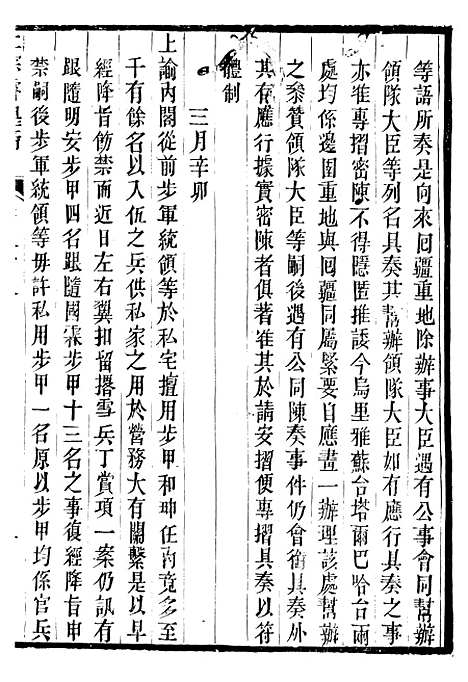 等語所奏是向來回疆重地除辦事大臣遇有公事會同幫辦
領隊大臣等列名具奏其幫辦領隊大臣如有應行具奏之事
亦准專摺密陳不得隱匿推諉今烏里雅蘇台塔爾巴哈台兩
處均係邊圉重地與回疆同屬緊要自應畫一辦理該處幫辦
之叅贊領隊大臣等嗣後遇有公同陳奏事件仍會銜具奏外
其有應行據實密陳者俱著准其於請安摺便專摺具奏以符
體制
三月辛卯
上諭內閣從前步軍統領等於私宅擅用步甲和珅任內竟多至
千有餘名以入伍之兵供私家之用於營務大有關繫是以早
經降旨飭禁而近日左右翼扣留撂雪兵丁賞項一案仍訊有
跟隨明安步甲四名跟隨國霖步甲十三名之事復經降旨申
禁嗣後步軍統領等毋許私用步甲一名原以步甲均係官兵